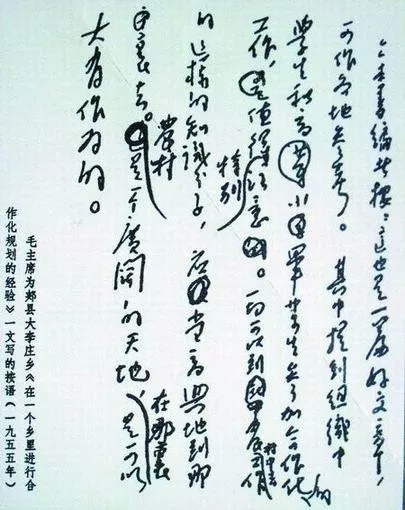 编者按：這也是一篇好文章，
可作各地参考。其中提到组织中
学生和高小毕业生参加合作化的
工作，值得特别注意。一切可以到
的這樣的知識分子，应当高興地到那
裏去。農村是一个廣闊的天地，在那裏是可以
大有作为的。
毛主席为郏县大李庄乡《在一个乡里进行合
作化规划的经验》一文写的按语（一九五五年）